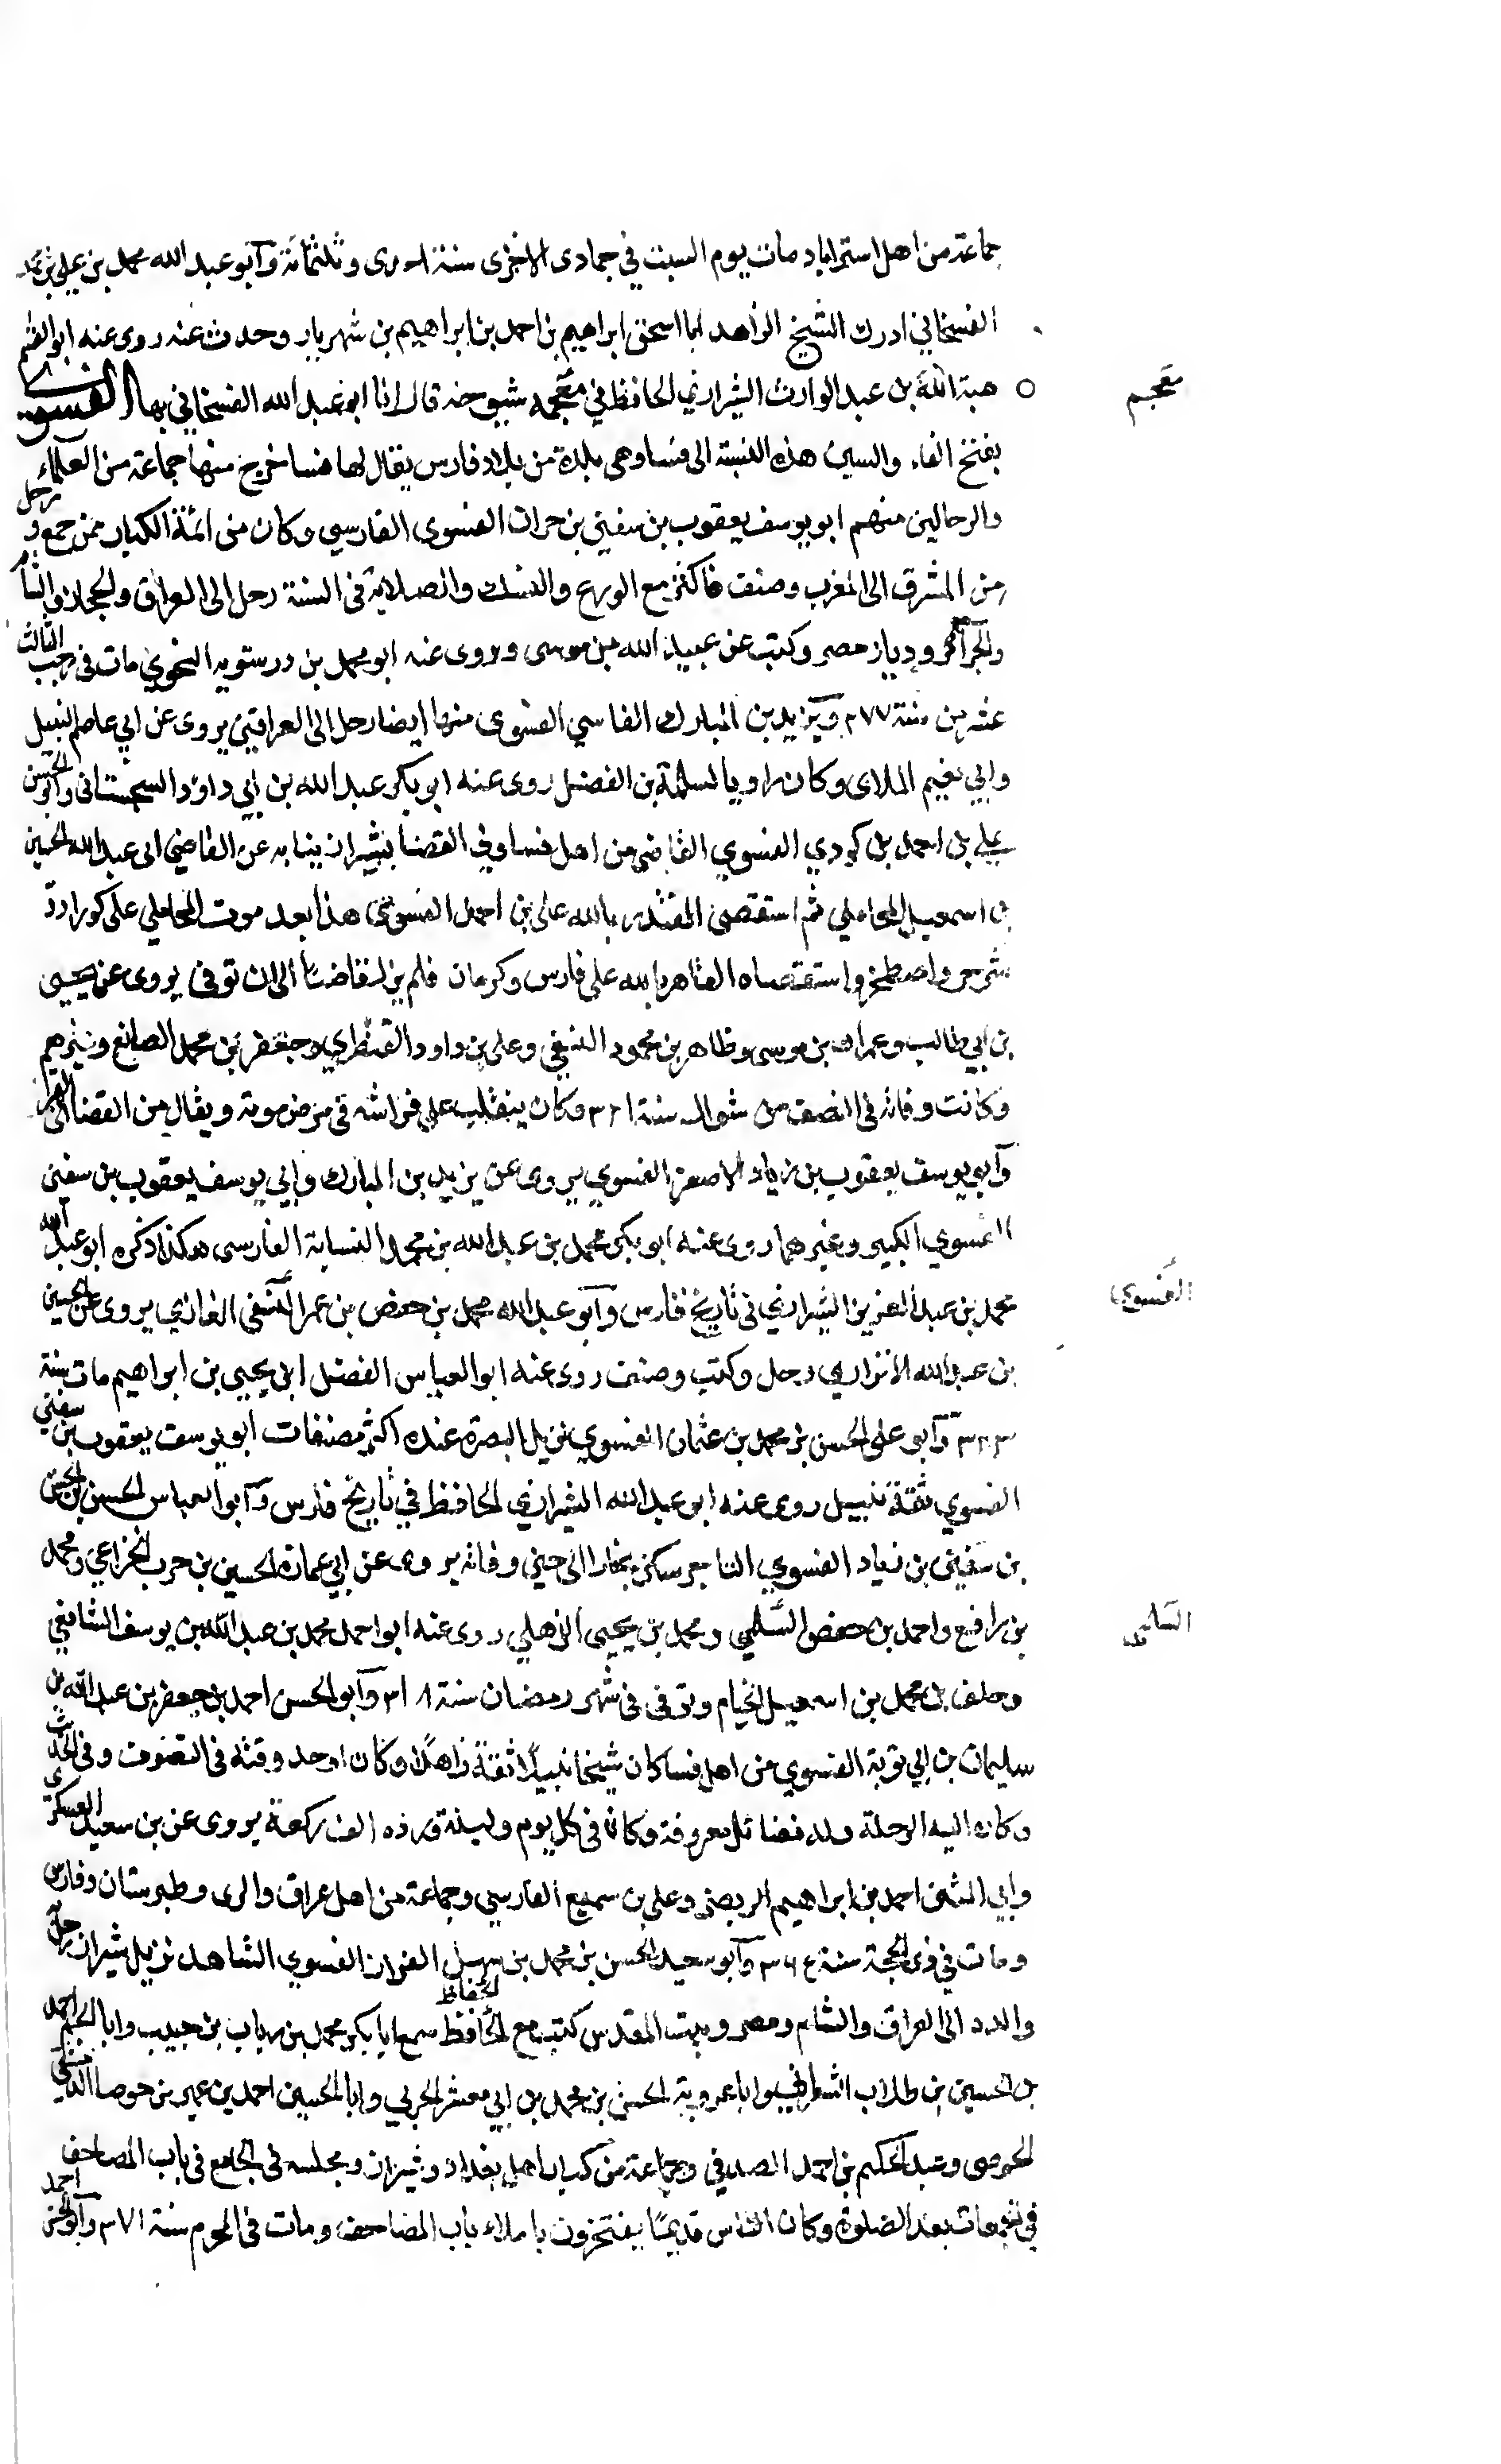 جماعة من اهل استراباد مات يوم السبت في جمادى الاخرى سنة احدى وثلثمائة وابو عبد الله محمد بن علي بن
الفسخاني ادرك الشيخ الزاهد ابا اسحق ابراهيم بن احمد بن ابراهيم بن شهريار وحدث عنه روى عنه ابو القسم
هبة الله بن عبد الوارث الشيرازي الحافظ في معجمه شيوخه قال انا ابو عبد الله الفسخاني بها الفسوي
معجم
بفتح الفاء والسين هذه النسبة الى فسا وهي بلدة من بلاد فارس يقال لها فسا خرج منها جماعة من العلماء
والرحالين منهم ابو يوسف يعقوب بن سفين بن الفسوى الفارسي وكان من ائمة الكبار ممن جمع و رحل
من المشرق الى المغرب وصنف فاكثر مع الورع والنسك والصلابة في السنة رحل الى العراق والحجاز والشام
والجزائر وديار مصر وكتب عن عبيد الله بن موسى وروى عنه ابو محمد بن درستويه النحوي مات في رجب الثالث
عشر من سنة ٢٧٧ ويزيد بن المبارك الفاسي الفسوى منها ايضا رحل الى العراقين يروى عن ابي عاصم النبيل
وابي نعيم الملاى وكان راويا لسلمة بن الفضل روى عنه ابو بكر عبد الله بن ابي داود السجستانى وابو الحسن
علي بن احمد بن كودي الفسوي القاضى من اهل فسا وفي القضا بشيراز نيابه عن القاضي ابى عبد الله الحسين
بن اسمعيل المحاملي ثم استقصى المقتدر بالله على بن احمد الفسوي هذا بعد موت المحاملي على كور
واصطخر واستقصاه القاهر بالله على فارس وكرمان فلم يزل قاضيا الى ان توفى يروى عن يحيى
بن ابي طالب وعمران بن موسى وظاهر بن محمود النسفي وعلى بن داود القنطري وجعفر بن محمد الصانع وغيرهم
وكانت وفاته في النصف من شوال سنة وكان ينقلب علي فراشه في مرض موته ويقال من القضا الى
وابو يوسف يعقوب بن زياد الاصغر الفسوي يروى عن يزيد بن المبارك وابي يوسف يعقوب بن سفين
الفسوي الكبير وغيرهما روى عنه ابو بكر محمد بن عبد الله بن محمد النسابة الفارسى هكذا ذكره ابو عبد الله
محمد بن عبد العزيز الشيرازي في تاريخ فارس وابو عبد الله محمد بن حفص بن عمر النسفى الغازي يروى عن الحسين
الفسوي
بن عبد الله رحل وكتب وصنف روى عنه ابو العباس الفضل ابن يحيى بن ابراهيم مات سنة
وابو على الحسن بن محمد بن عثمان الفسوي نزيل البصرة عنده اكثر مصنفات ابو يوسف يعقوب بن سفين
الفسوي ثقة نبيل روى عنه ابو عبد الله الشيرازي الحافظ في تاريخ فارس وابو العباس الحسن بن الحسن
بن سفين بن زياد الفسوي التاجر سكن بخارا الى حين وفاته يروى عن ابي عمارة الحسين بن حرب الخزاعي ومحمد
بن رافع واحمد بن حفص السلمي ومحمد بن يحيى الذهلي روى عنه ابو احمد محمد بن عبد الله بن يوسف الشافعي
السلمي
وخلف بن محمد بن اسمعيل الخيام وتوفى في شهر رمضان سنة ٣١٨ وابو الحسن احمد بن جعفر بن عبد الله بن
سليمان بن ابي توبة الفسوي من اهل فسا كان شيخا نبيلا ثقة زاهدا وكان اوحد وقته في التصوف وفي الحديث
وكان اليه الرحلة وله فضائل معروفة وكان في كل يوم وليلة ورده الف ركعة يروى عن بن سعيد العسكرى
وابي احمد بن ابراهيم وعلى بن سميع الفارسي وجماعة من اهل عراق والرى وطبرستان وفارس
ومات في ذى الحجة سنة ٣٦٤ وابو سعيد الحسن بن محمد بن سهل الفسوي الشاهد نزيل شيراز رحل
والده الى العراق والشام ومصر وبيت المقدس كتب مع الحافظ الحفاظ سمع ابا بكر محمد بن رباب بن حبيب وابا الجهم احمد
بن الحسين بن طلاب وابا عروبة الحسن بن محمد بن ابي معشر الحربي وابا الحسين احمد بن عمير بن حوصا الدمشقي
الحوصى وعبد الحكيم بن احمد الصدفي وجماعة من كبار اهل بغداد وشيراز ومجلسه في الجامع في باب المصاحف
في الجمعات بعد الصلوة وكان الناس قديما يفتخرون باملاء باب المصاحف ومات في المحرم سنة ٣٧١ وابو الحسن احمد